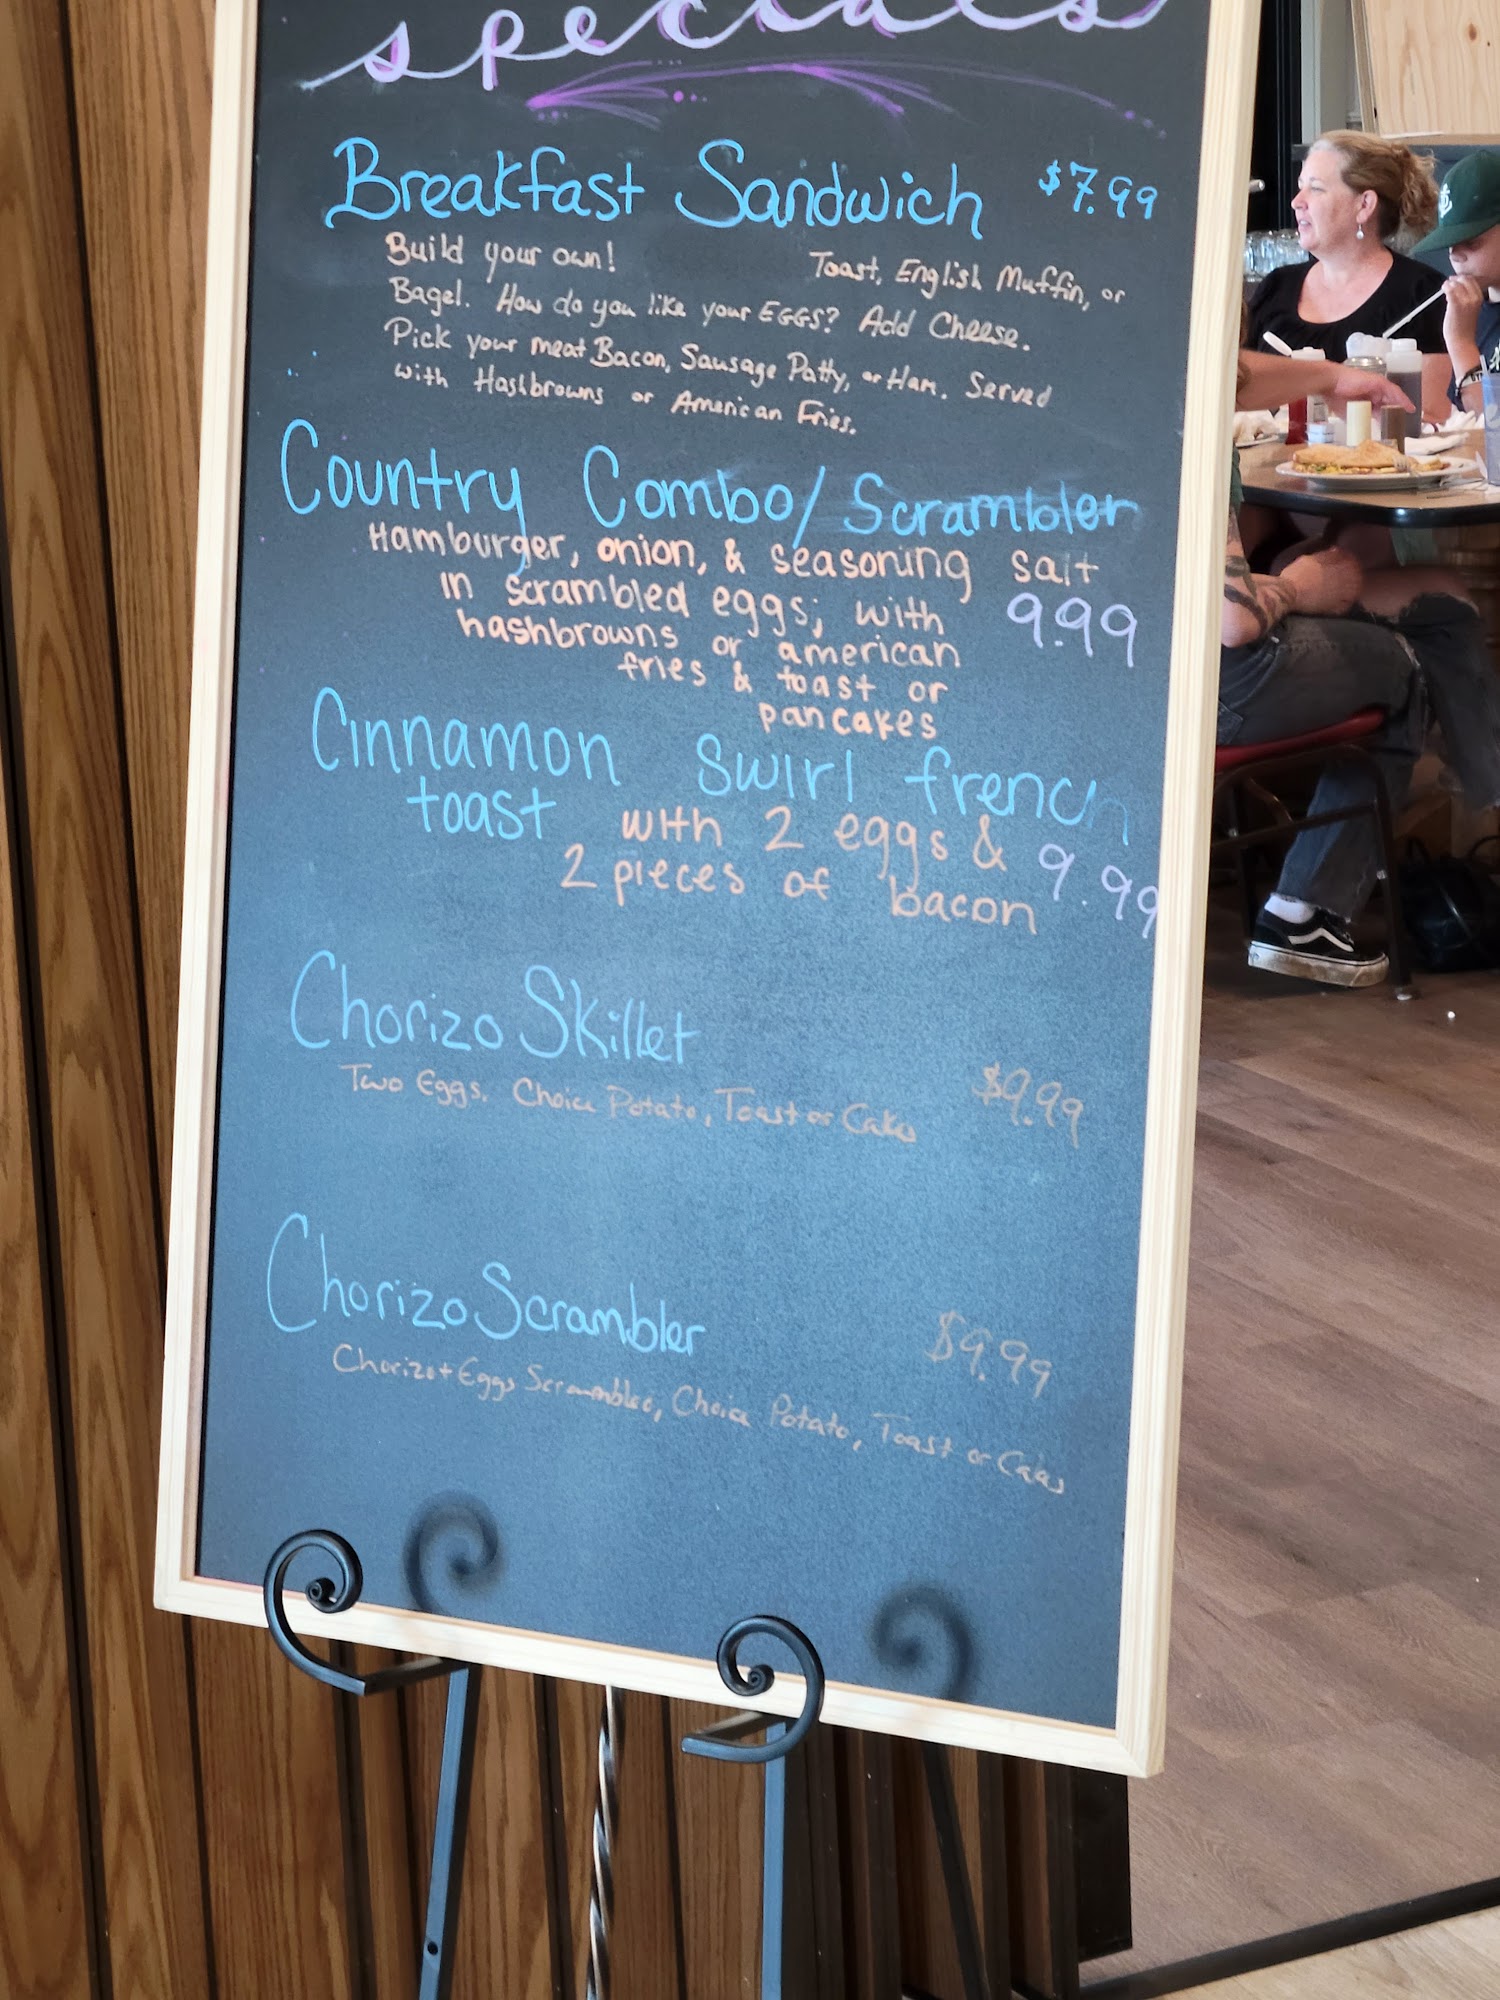 specials
Breakfast Sandwich $7.99
Build your own! Toast, English Muffin, or
Bagel. How do you like your EGGS? Add Cheese.
Pick your meat Bacon, Sausage Patty, or Ham. Served
with Hashbrowns or American Fries.
Country Combo/Scrambler
Hamburger, onion, & seasoning salt
in scrambled eggs; with 9.99
hashbrowns or american
fries & toast or
pancakes
Cinnamon Swirl french
toast with 2 eggs & 9.99
2 pieces of bacon
Chorizo Skillet
Two Eggs. Choice Potato, Toast or Cakes $9.99
Chorizo Scrambler $9.99
Chorizo + Eggs Scrambled, Choice Potato, Toast or Cakes